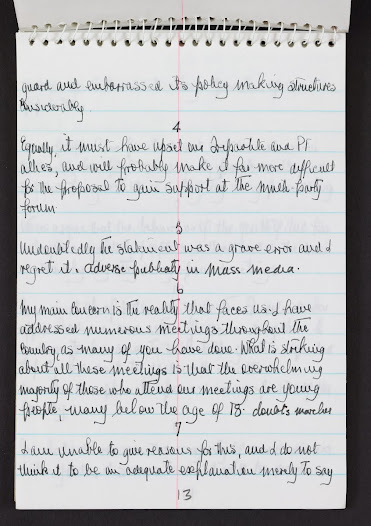 guard and embarrassed its policy making structures
considerably.
4
Equally, it must have upset our Tripartite and PF
allies, and will probably make it far more difficult
for the proposal to gain support at the multi-party
forum.
5
Undoubtedly the statement was a grave error and I
regret it. adverse publicity in mass media.
6
My main concern is the reality that faces us. I have
addressed numerous meetings throughout the
country, as many of you have done. What is striking
about all these meetings is that the overwhelming
majority of those who attend our meetings are young
people, many below the age of 18.
7
I am unable to give reasons for this, and I do not
think it to be an adequate explanation merely to say
13